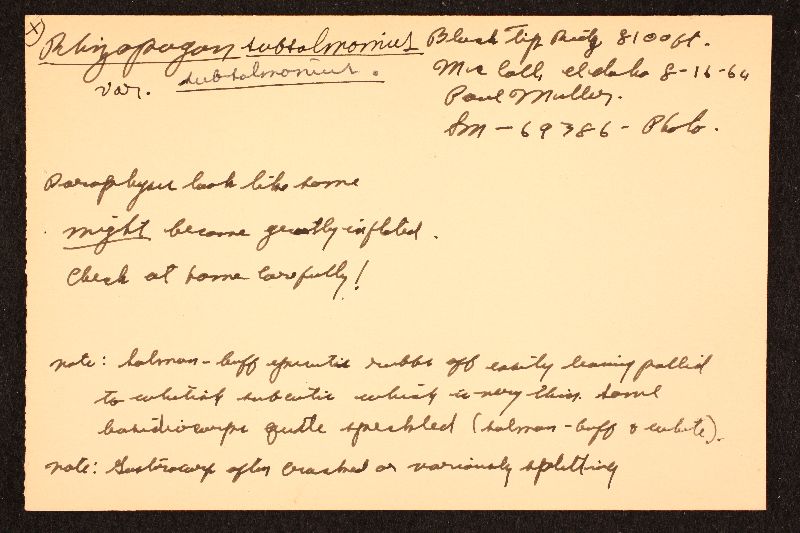 X)
Rhizopogon subsalmonius
var. subsalmonius.
Black Tip Ridg, 8100 ft.
McCall, Idaho 8-16-64
Paul Miller.
Sm - 69386 - Photo.
Paraphyses look like some
might become greatly inflated.
Check at home carefully!
note: Salmon-buff epicutis rubbs off easily leaving pallid
to whitish subcutis which is very thin. Some
basidiocarps quite speckled (salmon-buff & white).
note: Gastrocarp often cracked or variously splitting